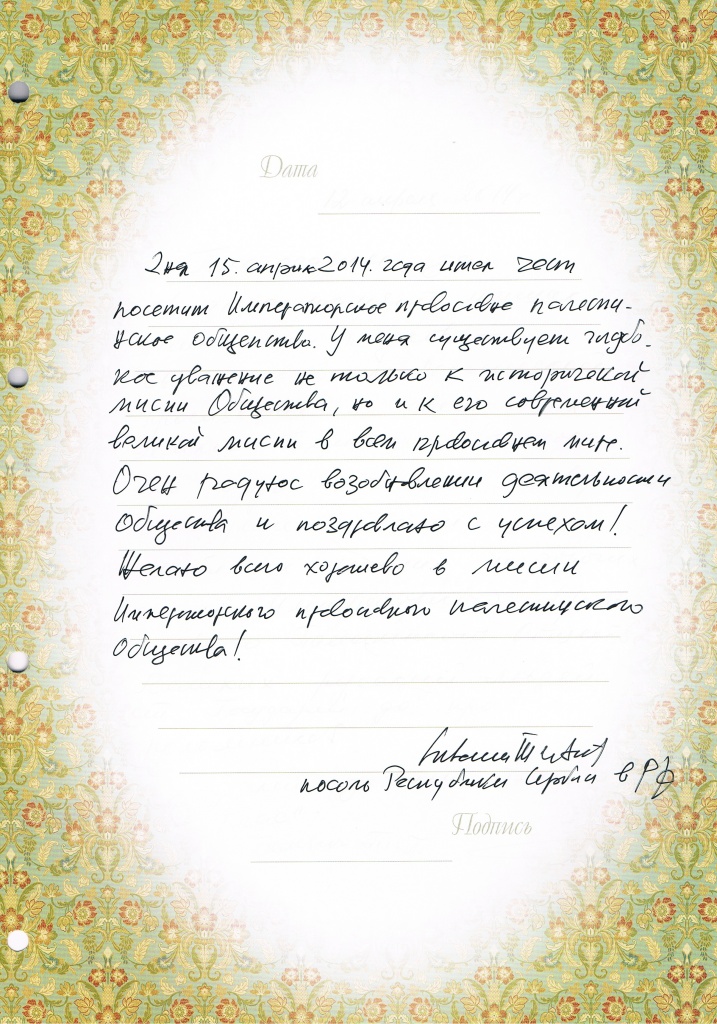 Дата
Дня 15. апрля 2014. года имел чест
посетит Императорское православне палести-
нское общепство. У меня существует глубо-
кое уважение не только к исторической
мисии Общества, но и к его современной
великой мисии в всем православнем мире.
Очен радуюс возобновлении деятельности
Общества и поздравлаю с успехом!
Желаю всего хорошево в мисии
Императорского православного палестинского
Общества!
посоль Республики Сербии в РФ
Подпись